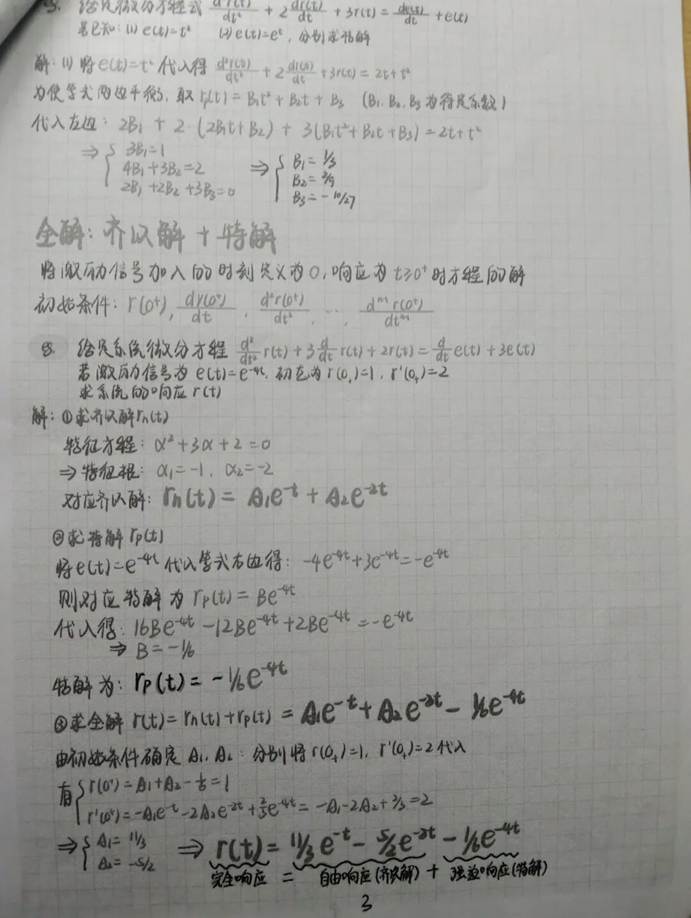 给定微分方程式 d²r(t)/dt² + 2 dr(t)/dt + 3r(t) = de(t)/dt + e(t)
若已知: (1) e(t)=t² (2) e(t)=eᵗ, 分别求特解
解: (1) 将e(t)=t²代入得 d²r(t)/dt² + 2 dr(t)/dt + 3r(t) = 2t+t²
为使等式两边平衡, 取 rp(t) = B₁t² + B₂t + B₃ (B₁、B₂、B₃为待定系数)
代入左边: 2B₁ + 2·(2B₁t+B₂) + 3(B₁t²+B₂t+B₃) = 2t+t²
⇒ { 3B₁=1 ⇒ { B₁=1/3
4B₁+3B₂=2 B₂=2/9
2B₁+2B₂+3B₃=0 B₃=-10/27
全解: 齐次解 + 特解
将激励信号加入的时刻定义为0, 响应为t≥0⁺时方程的解
初始条件: r(0⁺), dr(0⁺)/dt, d²r(0⁺)/dt², ..., dⁿ⁻¹r(0⁺)/dtⁿ⁻¹
给定系统微分方程 d²/dt² r(t) + 3 d/dt r(t) + 2r(t) = d/dt e(t) + 3e(t)
若激励信号为 e(t)=e⁻⁴ᵗ, 初态为 r(0₊)=1, r'(0₊)=2
求系统的响应 r(t)
解: ①求齐次解rn(t)
特征方程: α²+3α+2=0
⇒ 特征根: α₁=-1, α₂=-2
对应齐次解: rn(t) = A₁e⁻ᵗ + A₂e⁻²ᵗ
②求特解 rp(t)
将e(t)=e⁻⁴ᵗ 代入等式右边得: -4e⁻⁴ᵗ+3e⁻⁴ᵗ=-e⁻⁴ᵗ
则对应特解为 rp(t) = Be⁻⁴ᵗ
代入得: 16Be⁻⁴ᵗ-12Be⁻⁴ᵗ+2Be⁻⁴ᵗ=-e⁻⁴ᵗ
⇒ B=-1/6
特解为: rp(t) = -1/6e⁻⁴ᵗ
③求全解 r(t)=rn(t)+rp(t) = A₁e⁻ᵗ + A₂e⁻²ᵗ - 1/6e⁻⁴ᵗ
由初始条件确定 A₁、A₂: 分别将 r(0₊)=1, r'(0₊)=2 代入
有 { r(0⁺)=A₁+A₂-1/6=1
r'(0⁺)=-A₁e⁻ᵗ-2A₂e⁻²ᵗ+2/3e⁻⁴ᵗ=-A₁-2A₂+2/3=2
⇒ { A₁=11/3
A₂=-5/2 ⇒ r(t) = 11/3e⁻ᵗ - 5/2e⁻²ᵗ - 1/6e⁻⁴ᵗ
完全响应 = 自由响应(齐次解) + 强迫响应(特解)
3